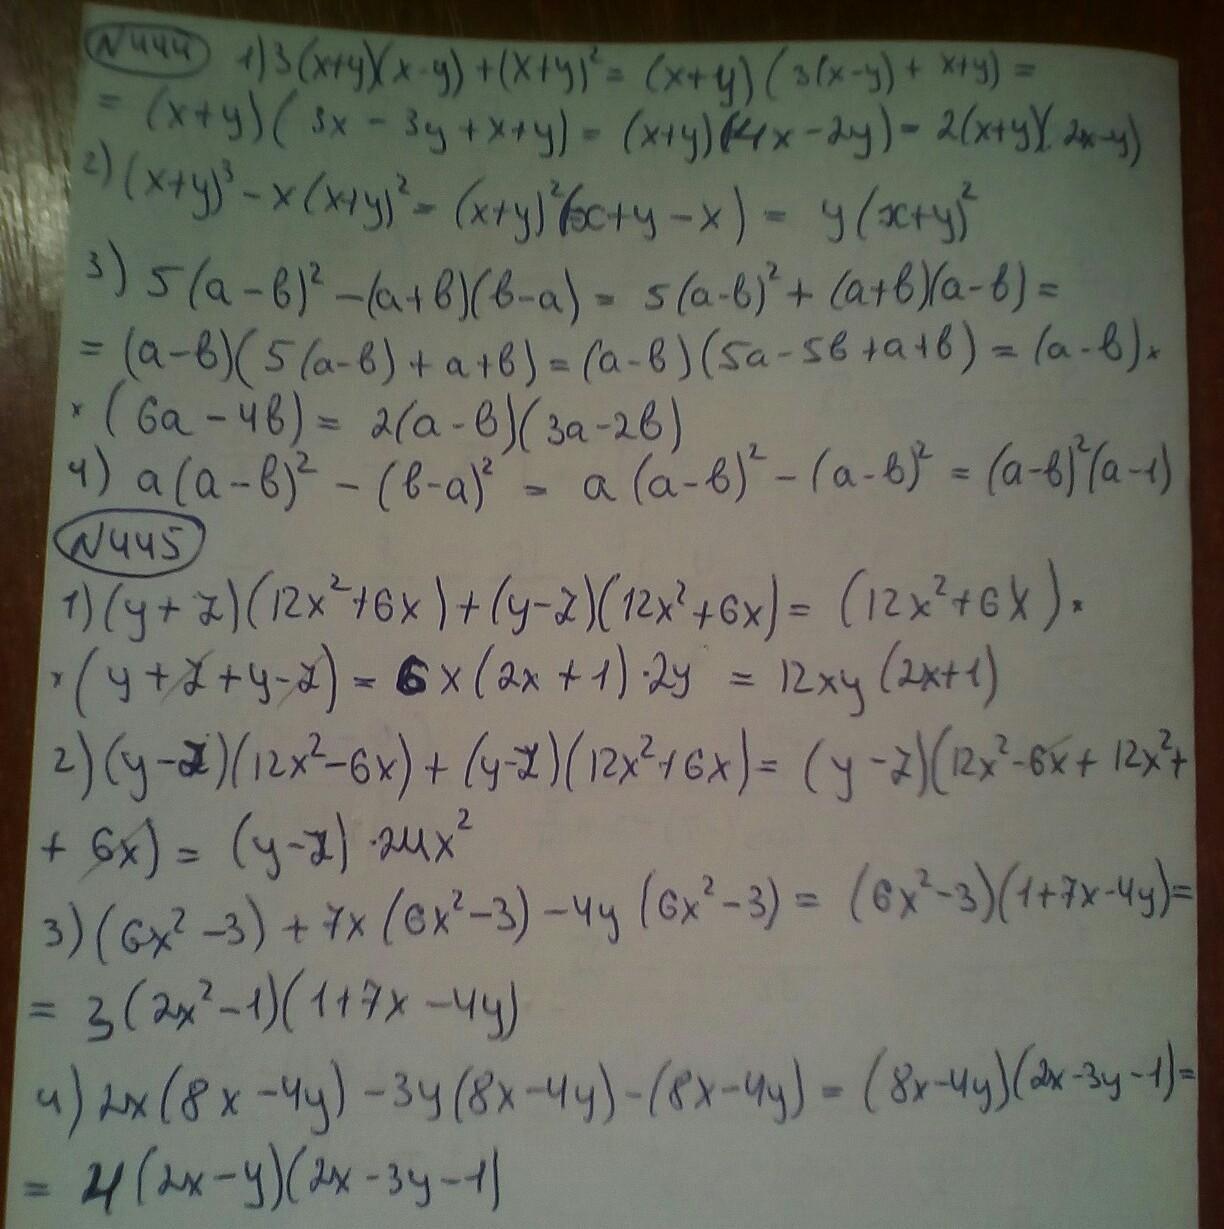 N444 1) 3(x+y)(x-y) + (x+y)² = (x+y) (3(x-y) + x+y) =
= (x+y) (3x - 3y + x+y) = (x+y)(4x-2y) = 2(x+y)(2x-y)
2) (x+y)³ - x(x+y)² = (x+y)²(x+y-x) = y(x+y)²
3) 5(a-b)² - (a+b)(b-a) = 5(a-b)² + (a+b)(a-b) =
= (a-b)(5(a-b) + a+b) = (a-b)(5a-5b+a+b) = (a-b) ×
× (6a-4b) = 2(a-b)(3a-2b)
4) a(a-b)² - (b-a)² = a(a-b)² - (a-b)² = (a-b)²(a-1)
N445
1) (y+z)(12x²+6x) + (y-z)(12x²+6x) = (12x²+6x) ×
× (y+z+y-z) = 6x(2x+1)·2y = 12xy(2x+1)
2) (y-z)(12x²-6x) + (y-z)(12x²+6x) = (y-z)(12x²-6x+12x²+
+ 6x) = (y-z)·24x²
3) (6x²-3) + 7x(6x²-3) - 4y(6x²-3) = (6x²-3)(1+7x-4y) =
= 3(2x²-1)(1+7x-4y)
4) 2x(8x-4y) - 3y(8x-4y) - (8x-4y) = (8x-4y)(2x-3y-1) =
= 4(2x-y)(2x-3y-1)